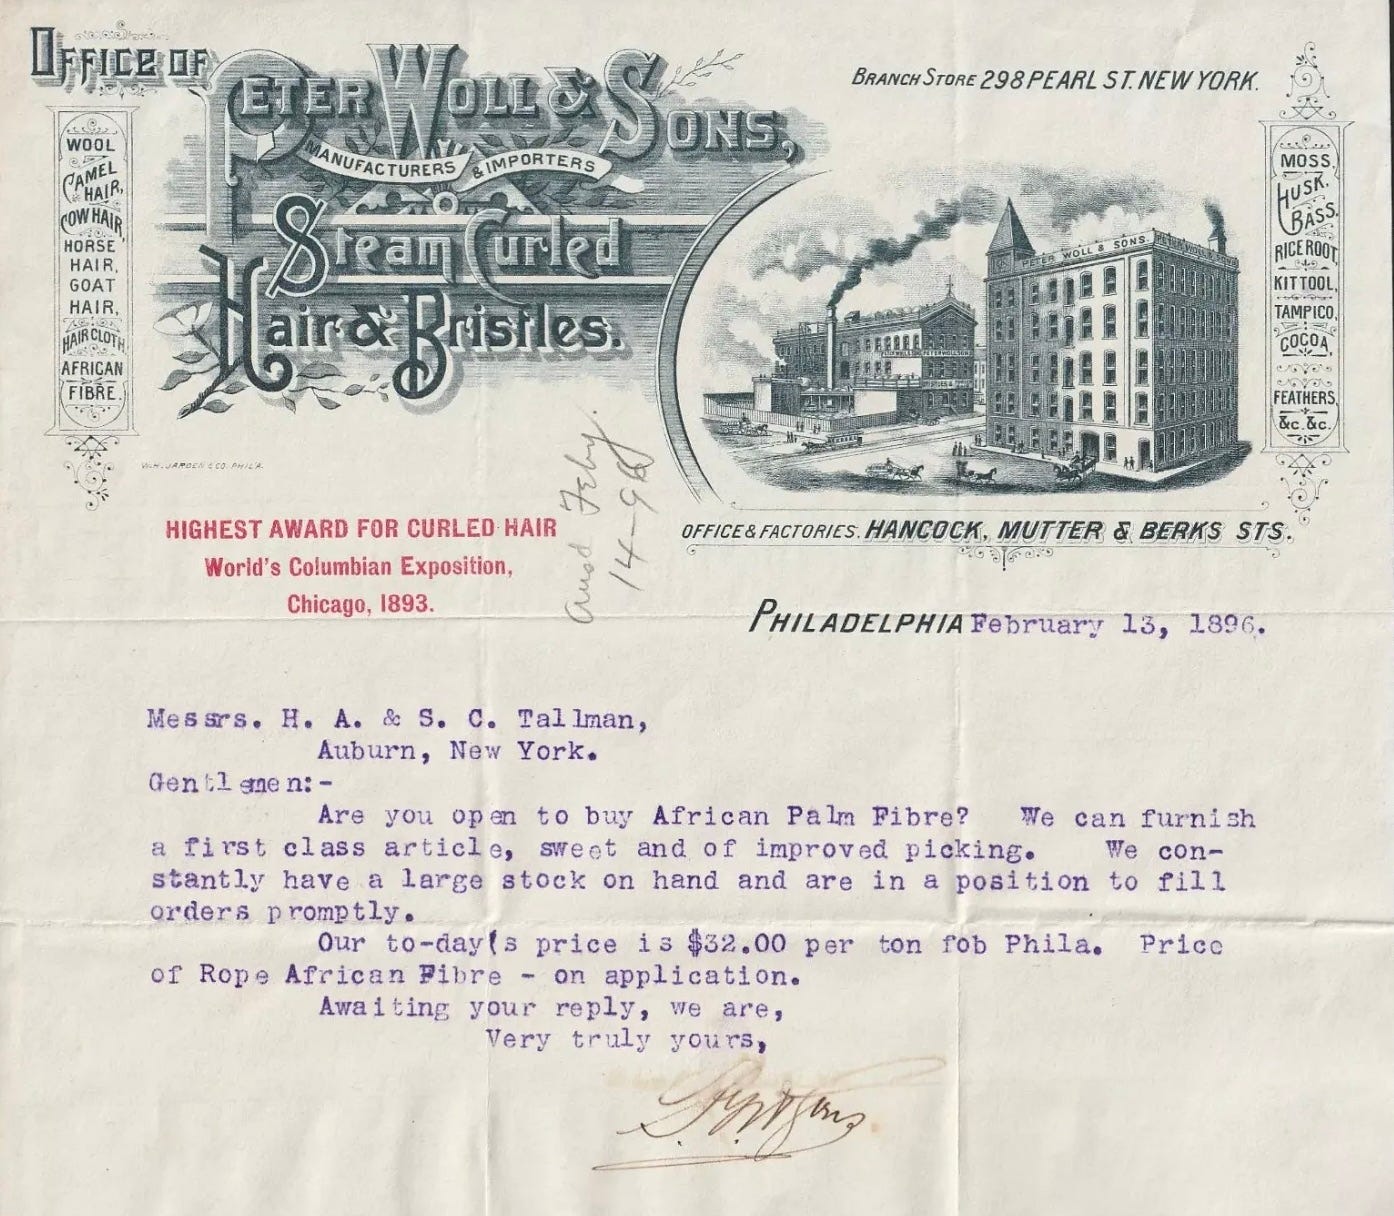 OFFICE OF
PETER WOLL & SONS,
MANUFACTURERS & IMPORTERS
Steam Curled
Hair & Bristles.
BRANCH STORE 298 PEARL ST. NEW YORK.
WOOL
CAMEL
HAIR,
COW HAIR,
HORSE
HAIR,
GOAT
HAIR,
HAIR CLOTH,
AFRICAN
FIBRE.
MOSS,
HUSK,
BASS,
RICE ROOT,
KITTOOL,
TAMPICO,
COCOA,
FEATHERS,
&c. &c.
PETER WOLL & SONS.
W.H. JARDEN & CO. PHIL'A.
HIGHEST AWARD FOR CURLED HAIR
World's Columbian Exposition,
Chicago, 1893.
Ansd Feby.
14-96
OFFICE & FACTORIES. HANCOCK, MUTTER & BERKS STS.
PHILADELPHIA February 13, 1896.
Messrs. H. A. & S. C. Tallman,
Auburn, New York.
Gentlemen:-
Are you open to buy African Palm Fibre? We can furnish
a first class article, sweet and of improved picking. We con-
stantly have a large stock on hand and are in a position to fill
orders promptly.
Our to-day(s price is $32.00 per ton fob Phila. Price
of Rope African Fibre - on application.
Awaiting your reply, we are,
Very truly yours,